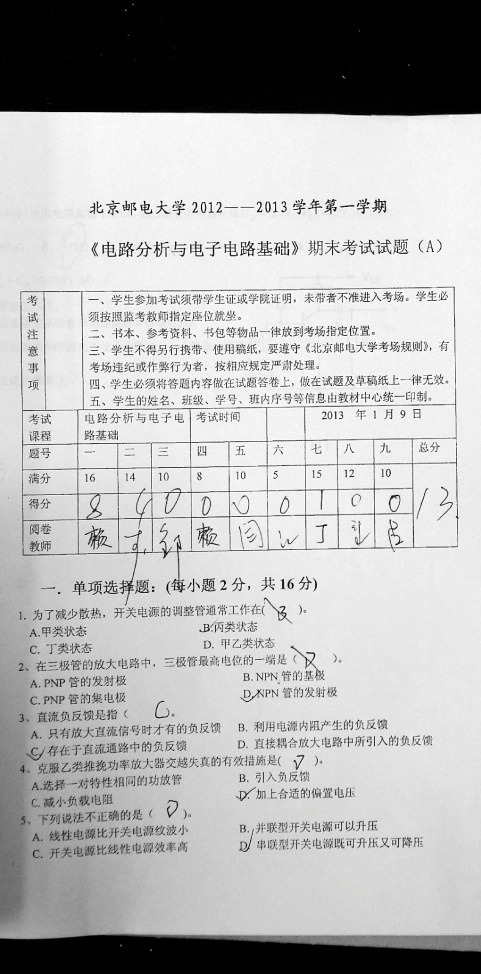 北京邮电大学 2012——2013 学年第一学期
《电路分析与电子电路基础》期末考试试题（A）
考试注意事项
一、学生参加考试须带学生证或学院证明，未带者不准进入考场。学生必
须按照监考教师指定座位就坐。
二、书本、参考资料、书包等物品一律放到考场指定位置。
三、学生不得另行携带、使用稿纸，要遵守《北京邮电大学考场规则》，有
考场违纪或作弊行为者，按相应规定严肃处理。
四、学生必须将答题内容做在试题答卷上，做在试题及草稿纸上一律无效。
五、学生的姓名、班级、学号、班内序号等信息由教材中心统一印制。
考试课程 电路分析与电子电路基础 考试时间 2013 年 1 月 9 日
题号 一 二 三 四 五 六 七 八 九 总分
满分 16 14 10 8 10 5 15 12 10
得分 8 4 0 0 0 0 1 0 0 13
阅卷教师 赖 赖 闫 丁
一．单项选择题：(每小题 2 分，共 16 分)
1. 为了减少散热，开关电源的调整管通常工作在( B )。
A.甲类状态 B.丙类状态
C. 丁类状态 D. 甲乙类状态
2、在三极管的放大电路中，三极管最高电位的一端是（ D ）。
A. PNP 管的发射极 B. NPN 管的基极
C. PNP 管的集电极 D. NPN 管的发射极
3、直流负反馈是指（ C 。
A. 只有放大直流信号时才有的负反馈 B. 利用电源内阻产生的负反馈
C. 存在于直流通路中的负反馈 D. 直接耦合放大电路中所引入的负反馈
4、克服乙类推挽功率放大器交越失真的有效措施是( D )。
A.选择一对特性相同的功放管 B. 引入负反馈
C. 减小负载电阻 D. 加上合适的偏置电压
5、下列说法不正确的是（ D ）。
A. 线性电源比开关电源纹波小 B. 并联型开关电源可以升压
C. 开关电源比线性电源效率高 D. 串联型开关电源既可升压又可降压